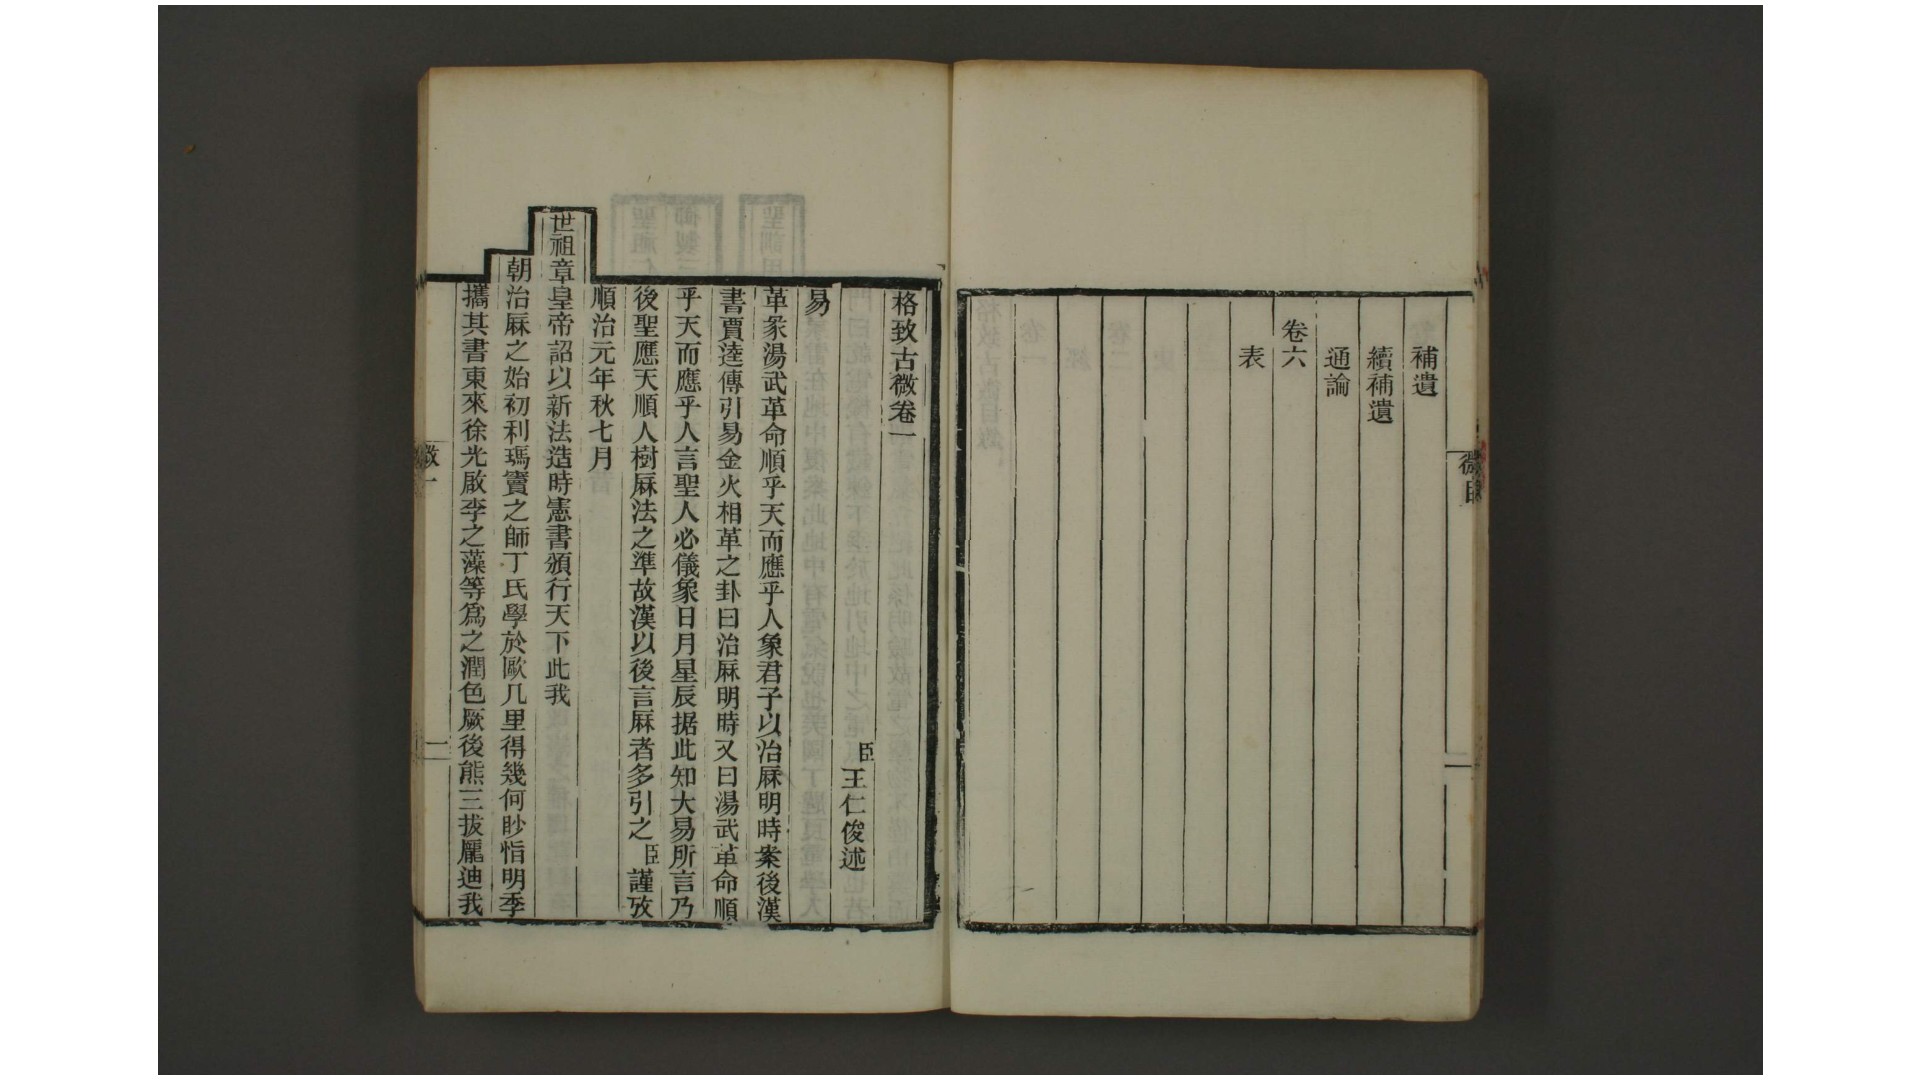 補遺
續補遺
通論
卷六
表
微目
格致古微卷一
臣王仁俊述
易
革彖湯武革命順乎天而應乎人象君子以治厤明時案後漢
書賈逵傳引易金火相革之卦曰治厤明時又曰湯武革命順
乎天而應乎人言聖人必儀象日月星辰据此知大易所言乃
後聖應天順人樹厤法之準故漢以後言厤者多引之臣謹攷
順治元年秋七月
世祖章皇帝詔以新法造時憲書頒行天下此我
朝治厤之始初利瑪竇之師丁氏學於歐几里得幾何眇恉明季
攜其書東來徐光啟李之藻等爲之潤色厥後熊三拔龐迪我
一